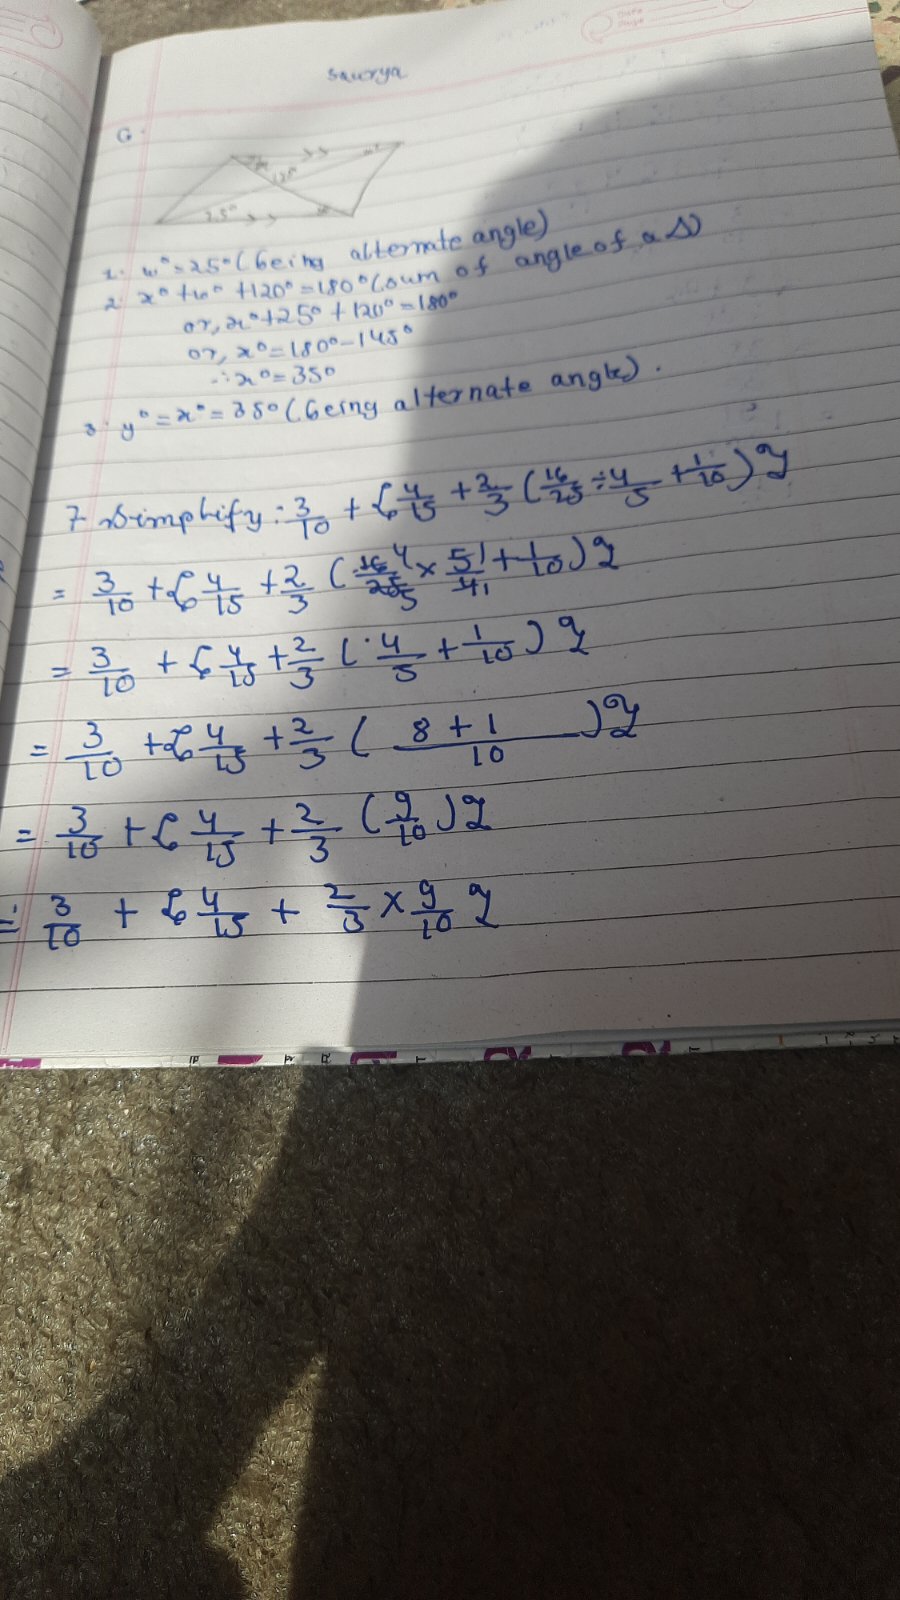 Saurya
6.
120°
25°
1. w° = 25° (being alternate angle)
2. x° + w° + 120° = 180° (sum of angle of a Δ)
or, x° + 25° + 120° = 180°
or, x° = 180° - 145°
∴ x° = 35°
3. y° = x° = 35° (being alternate angle).
7 Simplify: 3/10 + {4/15 + 2/3 (16/25 ÷ 4/5 + 1/10)}
= 3/10 + {4/15 + 2/3 (16/25 × 5/4 + 1/10)}
= 3/10 + {4/15 + 2/3 (4/5 + 1/10)}
= 3/10 + {4/15 + 2/3 (8 + 1/10)}
= 3/10 + {4/15 + 2/3 (9/10)}
= 3/10 + {4/15 + 2/3 × 9/10}